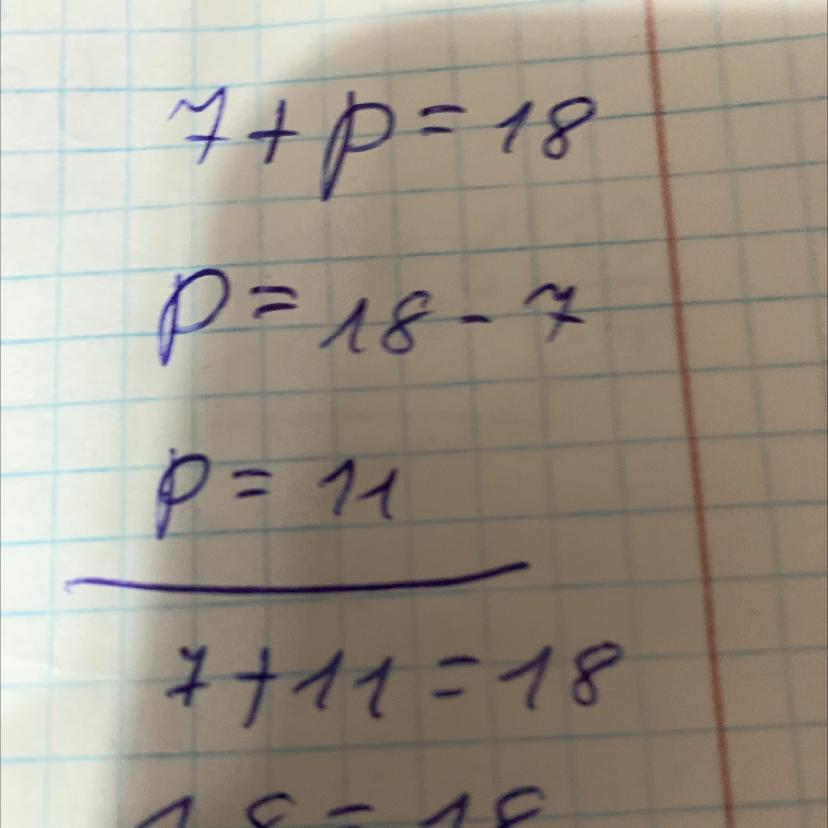 7+p=18
p=18-7
p=11
7+11=18
18=18